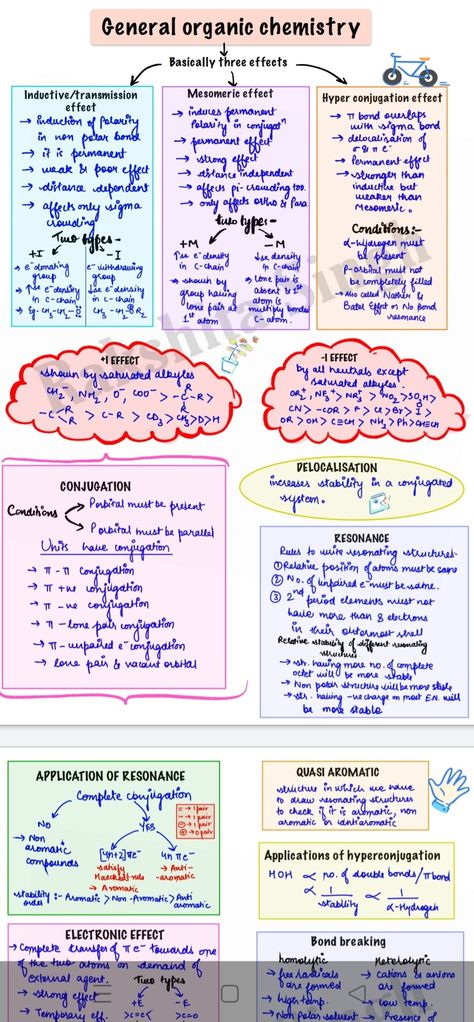 General organic chemistry
Basically three effects
Inductive/transmission
effect
→ Induction of Polarity
in non polar bond
→ it is permanent
→ weak & poor effect
→ distance dependent
→ affects only sigma
crowding
Two types-
+I
-I
→ e⁻donating
group
→ ↑se e⁻density
in c-chain
e⁻withdrawing
group
↓se e⁻density
in c-chain
Mesomeric effect
→ induces permanent
Polarity in conjugatⁿ
→ permanent effect
→ strong effect
→ distance independent
→ affects pi-crowding too.
→ only affects ortho & Para
two types:-
+M
-M
↑se e⁻density
in c-chain
→ shown by
group having
lone pair at
1st atom
↓se density
in c-chain
→ lone pair is
absent & 1st
atom is
multiply bonded
C-atom.
Hyper conjugation effect
→ π bond overlaps
with sigma bond
→ delocalisation of
σ & π e⁻
→ Permanent effect
→ stronger than
inductive but
weaker than
Mesomeric.
Conditions:-
α-Hydrogen must
be present
P-orbital must not
be completely filled
→ Also called Nathen &
Baker Effect or No Bond
resonance
+I EFFECT
shown by saturated alkyles
-I EFFECT
by all neutrals except
saturated alkyles.
CONJUGATION
Conditions
P orbital must be present
P orbital must be parallel
Units have conjugation
→ π-π conjugation
→ π +ve conjugation
→ π -ve conjugation
→ π-lone pair conjugation
→ π-unpaired e⁻ conjugation
→ lone pair & vacant orbital
DELOCALISATION
increases stability in a conjugated
system.
RESONANCE
Rules to write resonating structures-
① Relative position of atoms must be same
② No. of unpaired e⁻ must be same.
③ 2nd period elements must not
have more than 8 electrons
in their outermost shell
Relative stability of different resonating
structures
→ str. having more no. of complete
octet will be more stable
→ Non polar structure will be more stable
→ str. having -ve charge on most E.N. will
be more stable
APPLICATION OF RESONANCE
Complete conjugation
NO
YES
→ Non
aromatic
compounds
= → 1 pair
→ 1 pair
→ 1 pair
→ 0 pair
[4n+2]πe⁻
→ satisfy
Huckel rule
→ Aromatic
4n πe⁻
→ Anti-
aromatic
stability
order :- Aromatic > Non-Aromatic > Anti
aromatic
QUASI AROMATIC
structure in which we have
to draw resonating structures
to check if it is aromatic, non
aromatic or antiaromatic
Applications of hyperconjugation
HOH ∝ no. of double bonds/π bond
∝ 1/stability ∝ 1/α-Hydrogen
ELECTRONIC EFFECT
→ Complete transfer of πe⁻ towards one
of the two atoms on demand of
external agent.
→ strong effect
→ Temporary eff.
Two types
+E
-E
>c=c<
>c=o
Bond breaking
homolytic
→ free radicals
are formed
→ high temp.
→ Non Polar solvent
Heterolytic
→ cations & anions
are formed
→ low temp.
→ Presence of